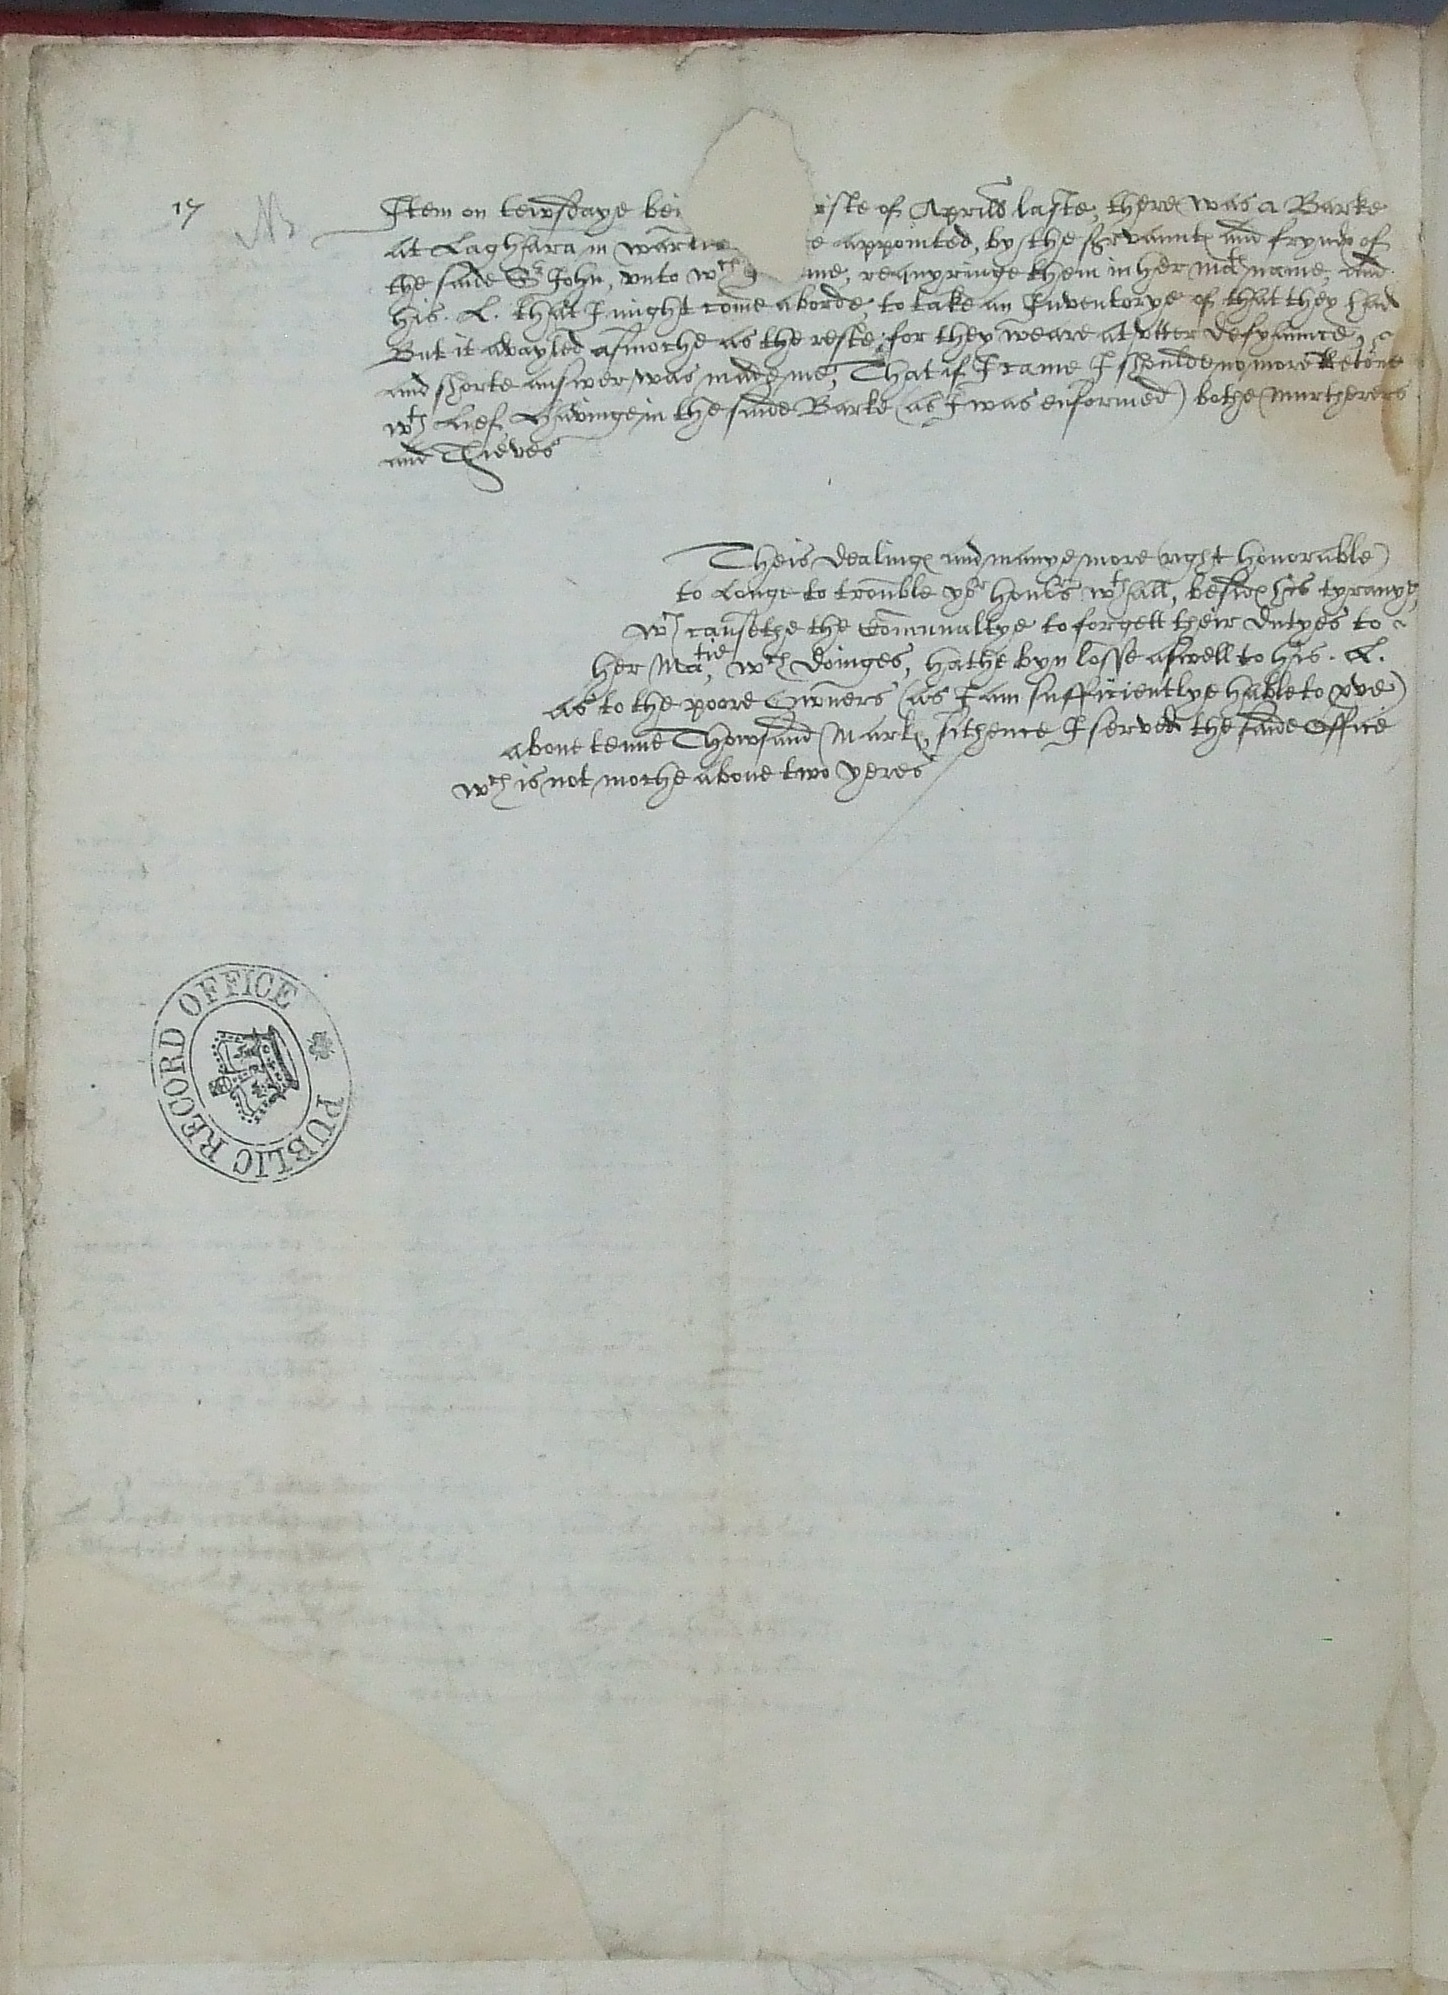 17
Item on tewsdaye bei iste of Aprill laste, there was a Barke
at Laghara in warr e appointed, by the servauntes and fryndes of
the saide Sr John, vnto wch me, requyringe them in her Mats name, and
his . L . that I might come aborde, to take an Inventorye of that they had
But it avayled asmoche as the reste, for they weare at vtter defyaunce,
and shorte answer was made me, That if I came I shoulde no more Retorne
wth lief, Havinge in the saide Barke (as I was enformed) bothe murtherers
and Thieves
Theis dealinges and manye more (right honorable)
to Longe to trouble yor honors wthall, besides his tyranye
wch causethe the Comunaltye to forgett their dutyes to
her Matie, wch doinges, hathe byn losse aswell to his . L .
as to the poore Owners (as I am sufficientlye hable to prve)
aboue tenne Thowsand Markes, sithence I served the saide Office
wch is not moche aboue two yeres
PUBLIC RECORD OFFICE